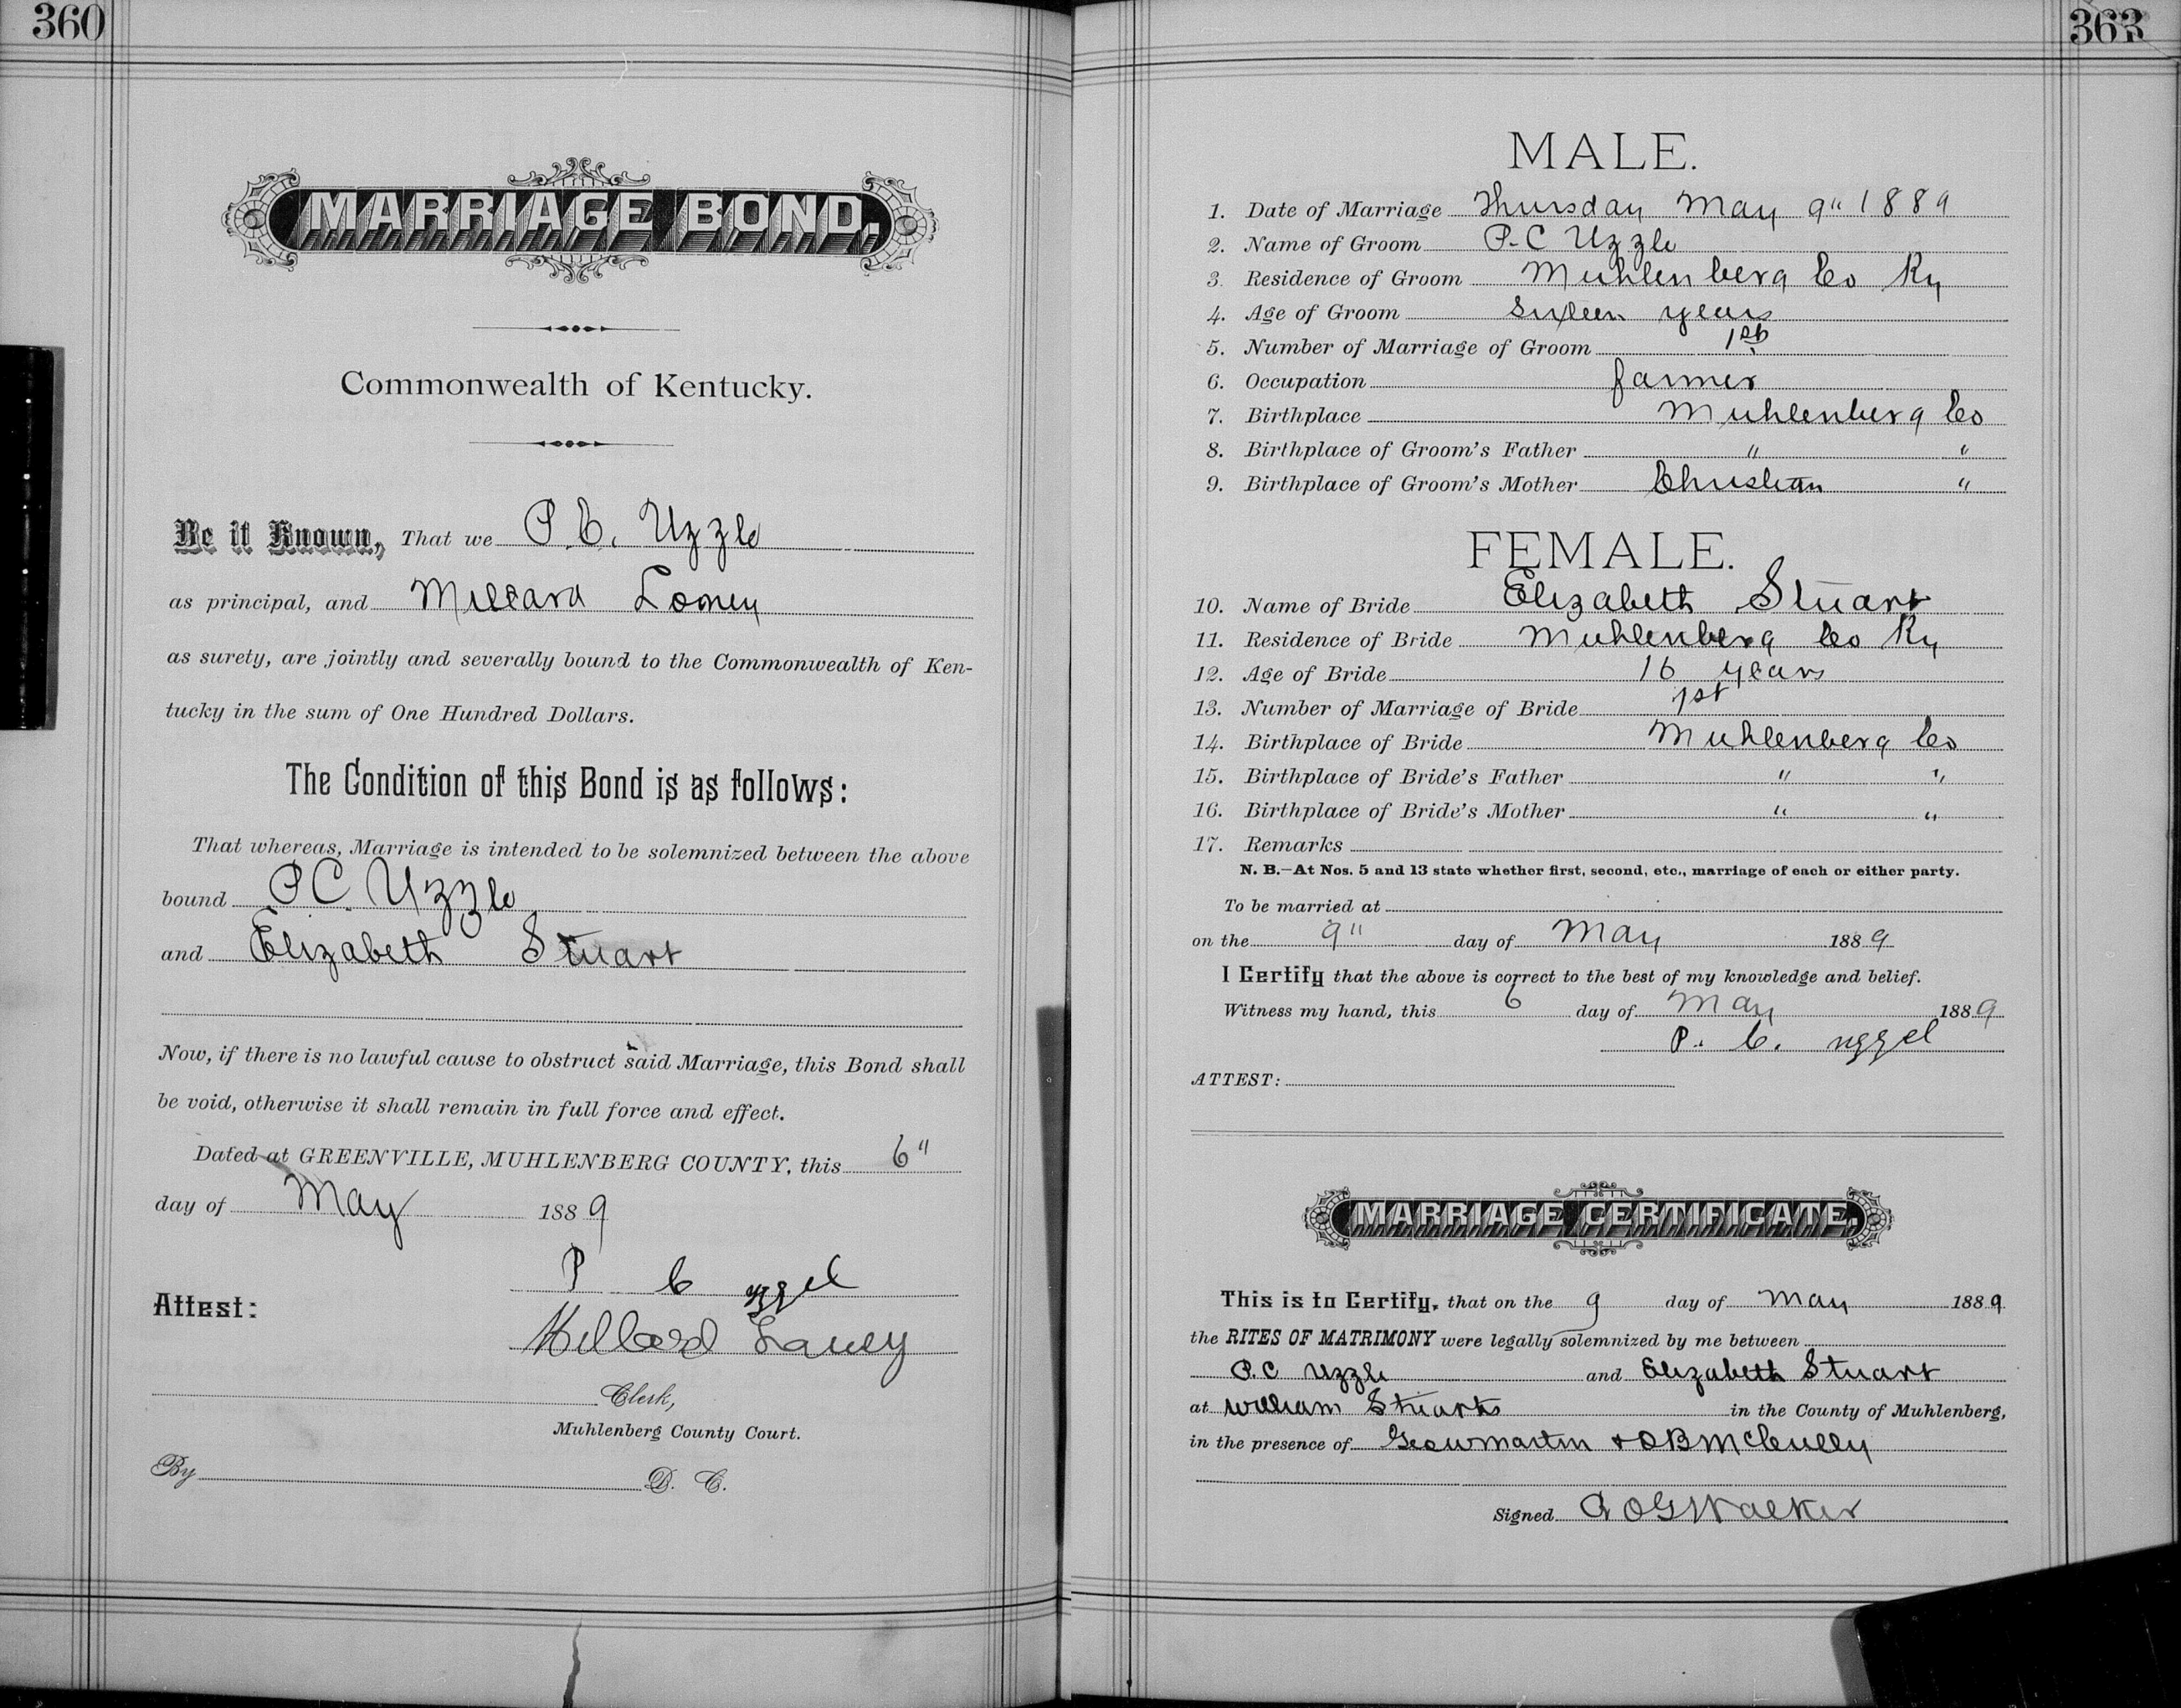 360
MARRIAGE BOND.
Commonwealth of Kentucky.
Be it Known, That we P. C. Uzzle
as principal, and Millard Looney
as surety, are jointly and severally bound to the Commonwealth of Ken-
tucky in the sum of One Hundred Dollars.
The Condition of this Bond is as follows:
That whereas, Marriage is intended to be solemnized between the above
bound P C Uzzle
and Elizabeth Stuart
Now, if there is no lawful cause to obstruct said Marriage, this Bond shall
be void, otherwise it shall remain in full force and effect.
Dated at GREENVILLE, MUHLENBERG COUNTY, this 6"
day of May 1889
P C uzzel
Attest:
Millard
Clerk,
Muhlenberg County Court.
By D. C.
363
MALE.
1. Date of Marriage Thursday May 9" 1889
2. Name of Groom P. C Uzzle
3. Residence of Groom Muhlenberg Co Ky
4. Age of Groom Sixteen years
5. Number of Marriage of Groom 1st
6. Occupation farmer
7. Birthplace Muhlenberg Co
8. Birthplace of Groom's Father " "
9. Birthplace of Groom's Mother Christian "
FEMALE.
10. Name of Bride Elizabeth Stuart
11. Residence of Bride Muhlenberg Co Ky
12. Age of Bride 16 years
13. Number of Marriage of Bride 1st
14. Birthplace of Bride Muhlenberg Co
15. Birthplace of Bride's Father " "
16. Birthplace of Bride's Mother " "
17. Remarks
N. B.—At Nos. 5 and 13 state whether first, second, etc., marriage of each or either party.
To be married at
on the 9" day of May 1889
I Certify that the above is correct to the best of my knowledge and belief.
Witness my hand, this 6 day of May 1889
P. C. uzzel
ATTEST:
MARRIAGE CERTIFICATE.
This is to Certify, that on the 9 day of May 1889
the RITES OF MATRIMONY were legally solemnized by me between
P. C Uzzle and Elizabeth Stuart
at William Stuarts in the County of Muhlenberg,
in the presence of Geo W Martin + O B McCully
Signed Walker